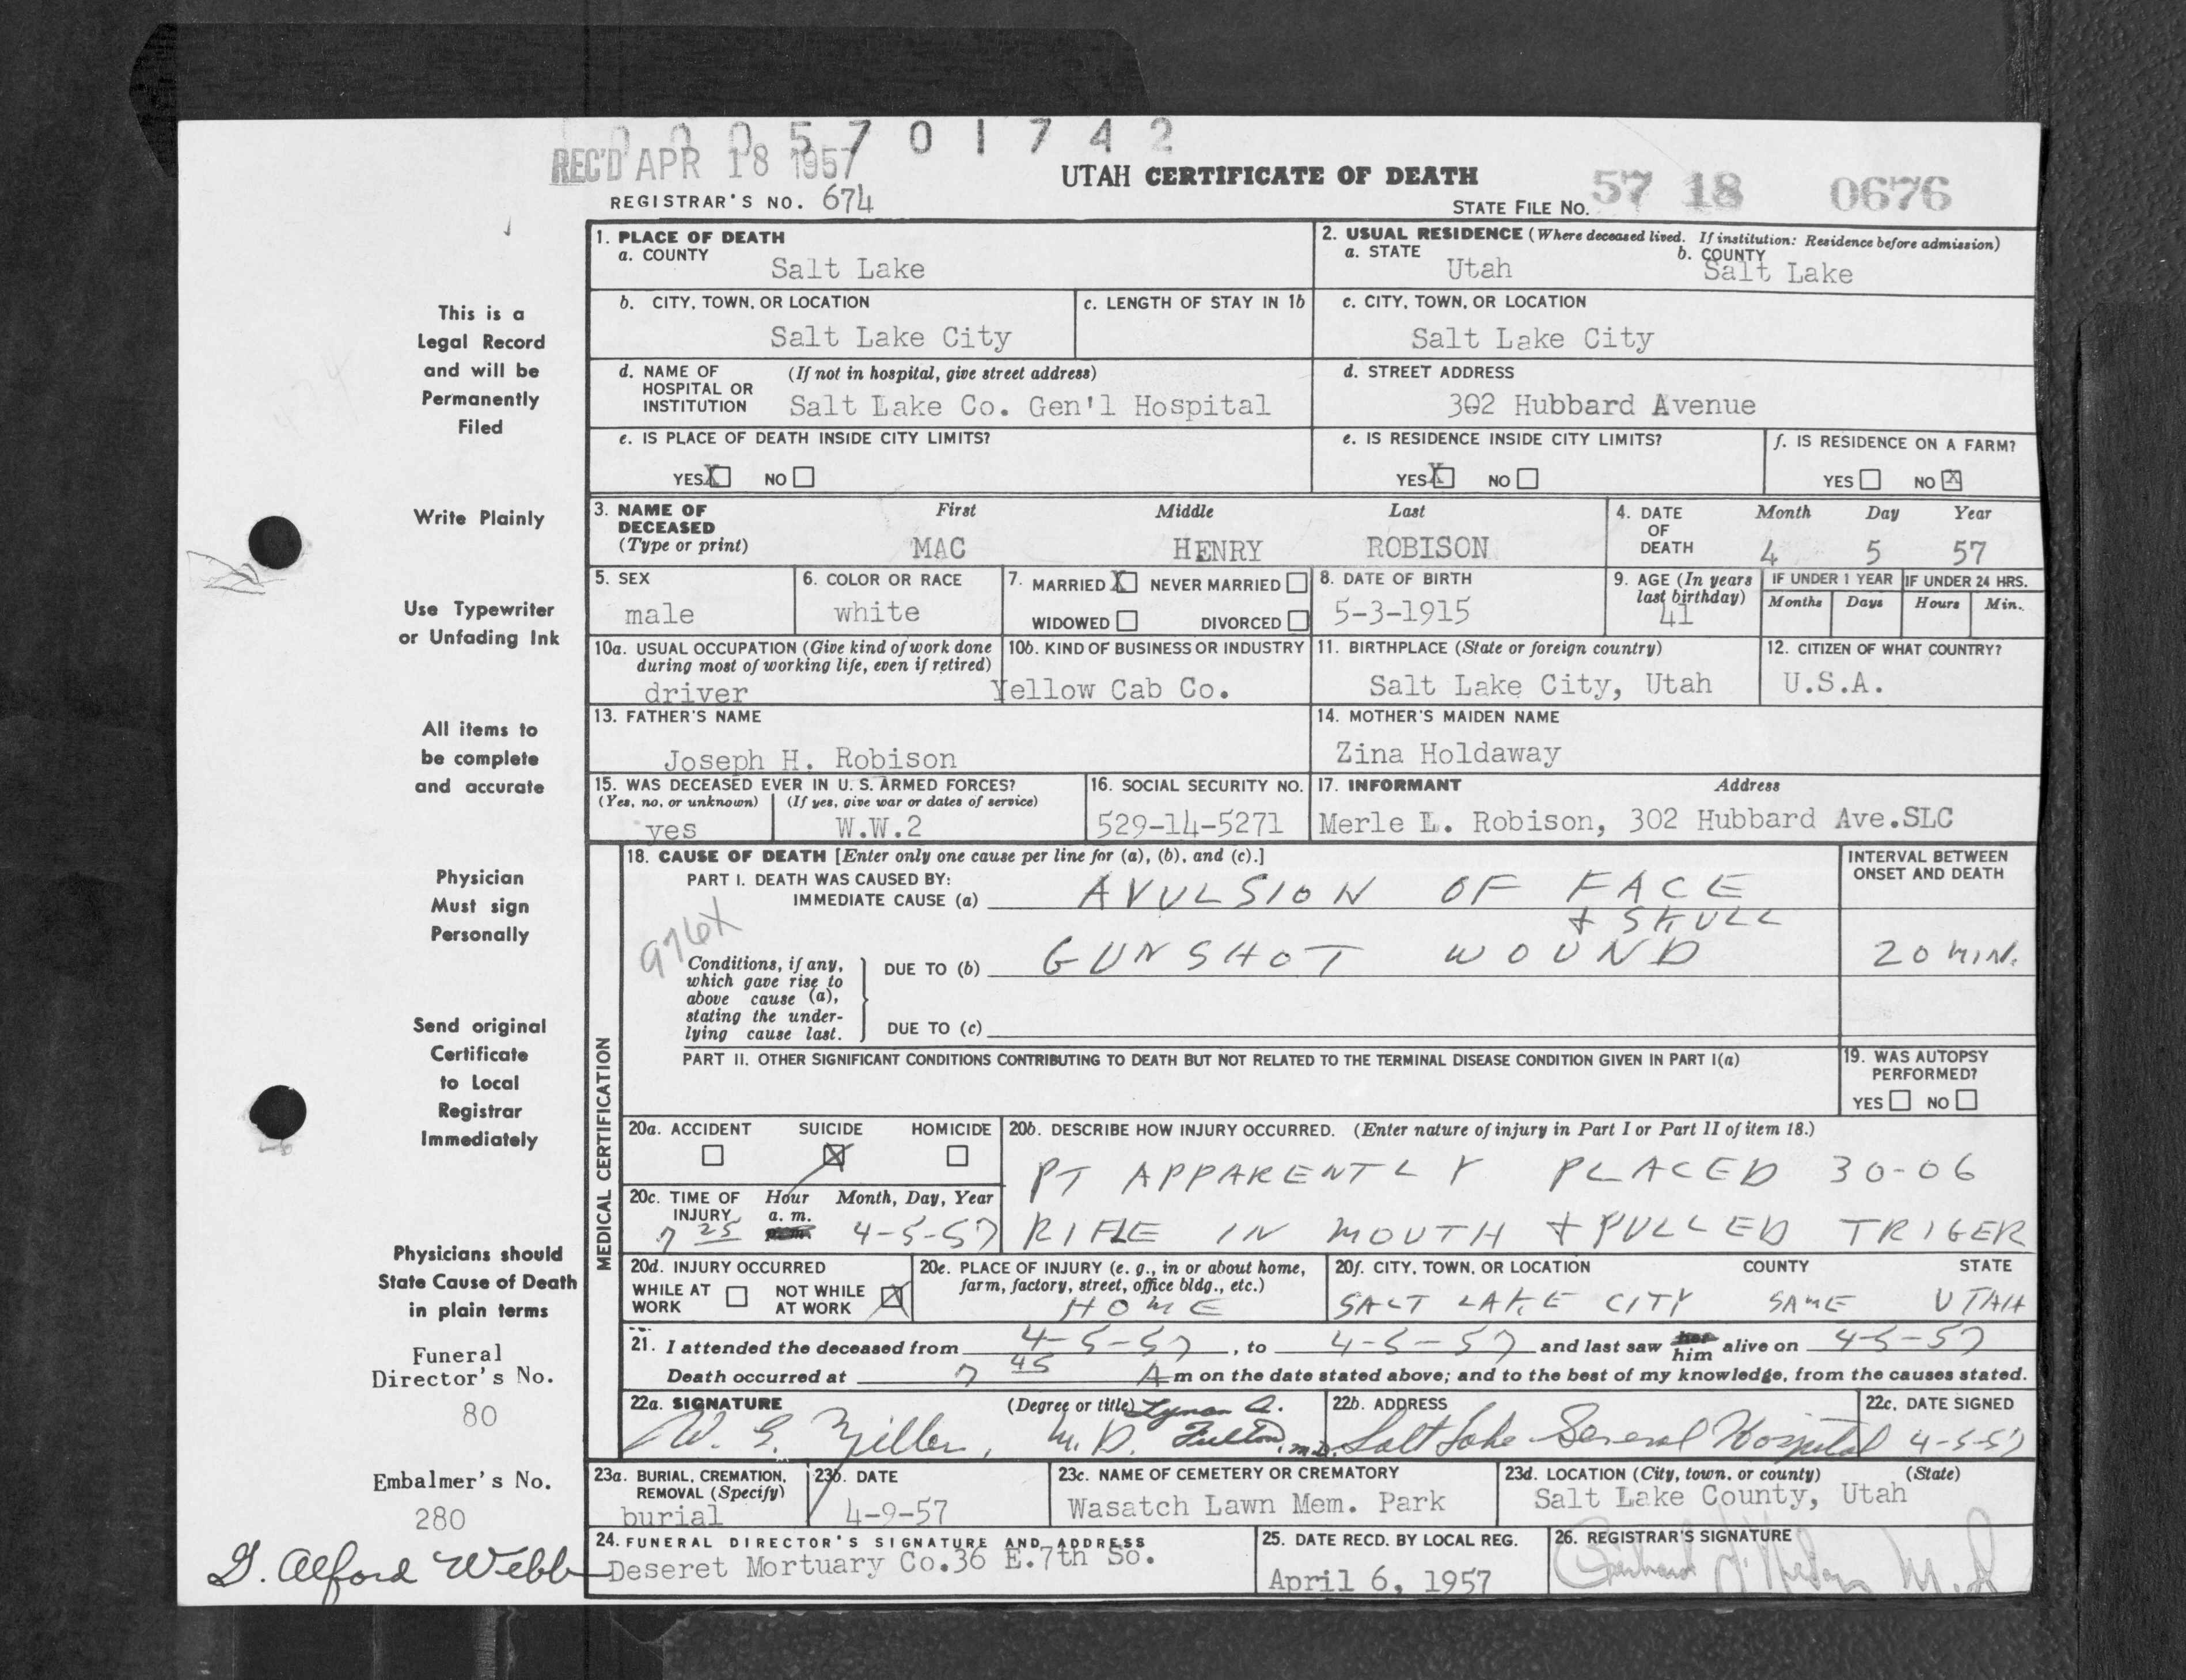 0 0 0 5 7 0 1 7 4 2
REC'D APR 18 1957
UTAH CERTIFICATE OF DEATH
REGISTRAR'S NO. 674
STATE FILE NO. 57 18 0676
1. PLACE OF DEATH
a. COUNTY
Salt Lake
2. USUAL RESIDENCE (Where deceased lived. If institution: Residence before admission)
a. STATE
Utah
b. COUNTY
Salt Lake
b. CITY, TOWN, OR LOCATION
Salt Lake City
c. LENGTH OF STAY IN 1b
c. CITY, TOWN, OR LOCATION
Salt Lake City
d. NAME OF HOSPITAL OR INSTITUTION (If not in hospital, give street address)
Salt Lake Co. Gen'l Hospital
d. STREET ADDRESS
302 Hubbard Avenue
e. IS PLACE OF DEATH INSIDE CITY LIMITS?
YES X NO
e. IS RESIDENCE INSIDE CITY LIMITS?
YES X NO
f. IS RESIDENCE ON A FARM?
YES NO X
3. NAME OF DECEASED (Type or print)
First Middle Last
MAC HENRY ROBISON
4. DATE OF DEATH
Month Day Year
4 5 57
5. SEX
male
6. COLOR OR RACE
white
7. MARRIED X NEVER MARRIED
WIDOWED DIVORCED
8. DATE OF BIRTH
5-3-1915
9. AGE (In years last birthday)
41
IF UNDER 1 YEAR
Months Days
IF UNDER 24 HRS.
Hours Min.
10a. USUAL OCCUPATION (Give kind of work done during most of working life, even if retired)
driver
10b. KIND OF BUSINESS OR INDUSTRY
Yellow Cab Co.
11. BIRTHPLACE (State or foreign country)
Salt Lake City, Utah
12. CITIZEN OF WHAT COUNTRY?
U.S.A.
13. FATHER'S NAME
Joseph H. Robison
14. MOTHER'S MAIDEN NAME
Zina Holdaway
15. WAS DECEASED EVER IN U. S. ARMED FORCES?
(Yes, no, or unknown) (If yes, give war or dates of service)
yes W.W.2
16. SOCIAL SECURITY NO.
529-14-5271
17. INFORMANT Address
Merle L. Robison, 302 Hubbard Ave.SLC
MEDICAL CERTIFICATION
18. CAUSE OF DEATH [Enter only one cause per line for (a), (b), and (c).]
INTERVAL BETWEEN ONSET AND DEATH
PART I. DEATH WAS CAUSED BY:
IMMEDIATE CAUSE (a) AVULSION OF FACE
+ SKULL
976X
Conditions, if any, which gave rise to above cause (a), stating the underlying cause last.
DUE TO (b) GUNSHOT WOUND 20 MIN.
DUE TO (c)
PART II. OTHER SIGNIFICANT CONDITIONS CONTRIBUTING TO DEATH BUT NOT RELATED TO THE TERMINAL DISEASE CONDITION GIVEN IN PART I(a)
19. WAS AUTOPSY PERFORMED?
YES NO
20a. ACCIDENT SUICIDE HOMICIDE
X
20b. DESCRIBE HOW INJURY OCCURRED. (Enter nature of injury in Part I or Part II of item 18.)
PT APPARENTLY PLACED 30-06
RIFLE IN MOUTH + PULLED TRIGER
20c. TIME OF INJURY Hour Month, Day, Year
7 25 a. m. 4-5-57
20d. INJURY OCCURRED
WHILE AT WORK NOT WHILE AT WORK X
20e. PLACE OF INJURY (e. g., in or about home, farm, factory, street, office bldg., etc.)
HOME
20f. CITY, TOWN, OR LOCATION COUNTY STATE
SALT LAKE CITY SAME UTAH
21. I attended the deceased from 4-5-57, to 4-5-57 and last saw him alive on 4-5-57
Death occurred at 7 45 A m on the date stated above; and to the best of my knowledge, from the causes stated.
22a. SIGNATURE (Degree or title)
W. G. Ziller, M.D. Lyman A. Fulton, M.D.
22b. ADDRESS
Salt Lake General Hospital
22c. DATE SIGNED
4-5-57
23a. BURIAL, CREMATION, REMOVAL (Specify)
burial
23b. DATE
4-9-57
23c. NAME OF CEMETERY OR CREMATORY
Wasatch Lawn Mem. Park
23d. LOCATION (City, town, or county) (State)
Salt Lake County, Utah
24. FUNERAL DIRECTOR'S SIGNATURE AND ADDRESS
Deseret Mortuary Co.36 E.7th So.
25. DATE RECD. BY LOCAL REG.
April 6, 1957
26. REGISTRAR'S SIGNATURE
This is a
Legal Record
and will be
Permanently
Filed
Write Plainly
Use Typewriter
or Unfading Ink
All items to
be complete
and accurate
Physician
Must sign
Personally
Send original
Certificate
to Local
Registrar
Immediately
Physicians should
State Cause of Death
in plain terms
Funeral
Director's No.
80
Embalmer's No.
280
G. Alford Webb